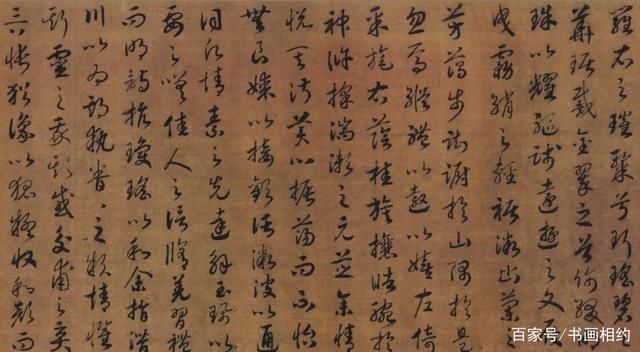 羅衣之璀粲兮珥瑤碧
華琚戴金翠之首飾綴
珠以耀軀踐遠遊之文履
曳霧綃之輕裾微幽蘭之
芳藹步踟躕於山隅於是
忽焉縱體以遨以嬉左倚
采旄右蔭桂旗攘皓腕於
神滸採湍瀨之元芝余情
悅其淑美心振蕩而不怡
無良媒以接歡託微波以通
詞願情素之先達解玉珮以
要之嗟佳人之信脩羌習禮
而明詩抗瓊珶以和余指潛
川以為期執眷眷之款情懼
斯靈之我欺感交甫之棄
言悵猶豫以狐疑收和顏而
百家号/书画相约